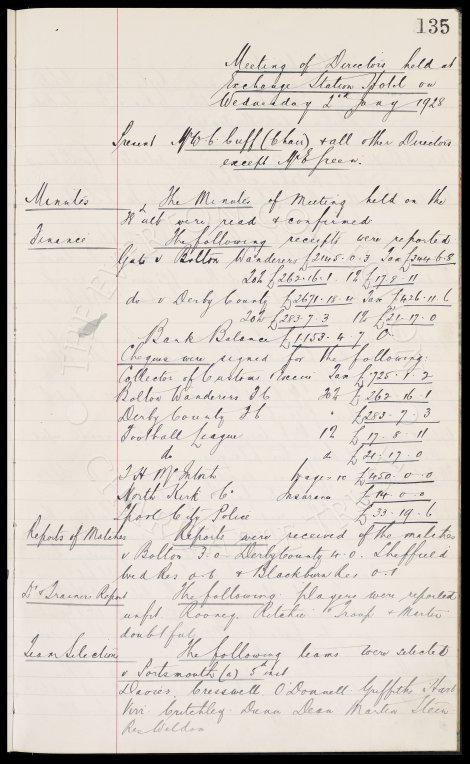 135
Meeting of Directors held at
Exchange Station Hotel on
Wednesday 2nd Jany 1928
Present Mr W. C. Cuff (Chair) & all other Directors
except Mr E Green.
Minutes The Minutes of Meeting held on the
ult were read & confirmed
Finance The following receipts were reported
Gate v Bolton Wanderers £2145.0.3 Tax £344.6.8
20% £262.16.1. 1% £17.8.11
do v Derby County £2671.18.11 Tax £426.11.6
20% £283.7.3 1% £21.17.0
Bank Balance £1153.4.7 0
Cheques were signed for the following:
Collector of Customs & Excise Tax £725.1.2
Bolton Wanderers FC 20% £262.16.1
Derby County FC " £283.7.3
Football League 1% £17.8.11
do £21.17.0
T H McIntosh Wages £450.0.0
North Kirk Co Insurance £14.0.0
Lpool City Police £33.19.6
Reports of Matches Reports were received of the matches
v Bolton 3.0 Derby County 4.0. Sheffield
Wed Res 0.6 & Blackburn Res 0.1
Dr & Trainers Report The following players were reported
unfit Rooney, Ritchie Troup & Martin
doubtful
Team Selection The following teams were selected
v Portsmouth (a) 5th inst
Davies Cresswell O'Donnell Griffiths Hart
Virr Critchley Dunn Dean Martin Stein
Res Weldon